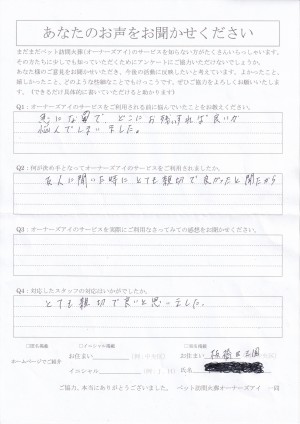 あなたのお声をお聞かせください
まだまだペット訪問火葬(オーナーズアイ)のサービスを知らない方がたくさんいらっしゃいます。
その方たちに少しでも知っていただくためにアンケートにご協力いただけないでしょうか。
あなた様のご意見をお聞かせいただき、今後の活動に反映したいと考えています。よかったこと、
嬉しかったこと、どのような些細なことでもけっこうです。ぜひご他のをよろしくお願いいたしま
す。(できるだけ具体的に書いていただけると助かります)
Q1:オーナーズアイのサービスをご利用される前に悩んでいたことをお教えください。
急にな事で、どこにお願いすれば良いか
悩んでしまいました。
Q2:何が決め手となってオーナーズアイのサービスをご利用されましたか。
友人に聞いた時にとても親切で良かったと聞たから
Q3:オーナーズアイのサービスを実際にご利用なさってみての感想をお聞かせください。
Q4:対応したスタッフの対応はいかがでしたか。
とても親切で良いと思いました。
□匿名掲載 □イニシャル掲載 □実名掲載
ホームページでご紹介
お住まい
お住まい 板橋区
イニシャル
氏名
ご協力、本当にありがとうございました。 ペット訪問火葬オーナーズアイ 一同